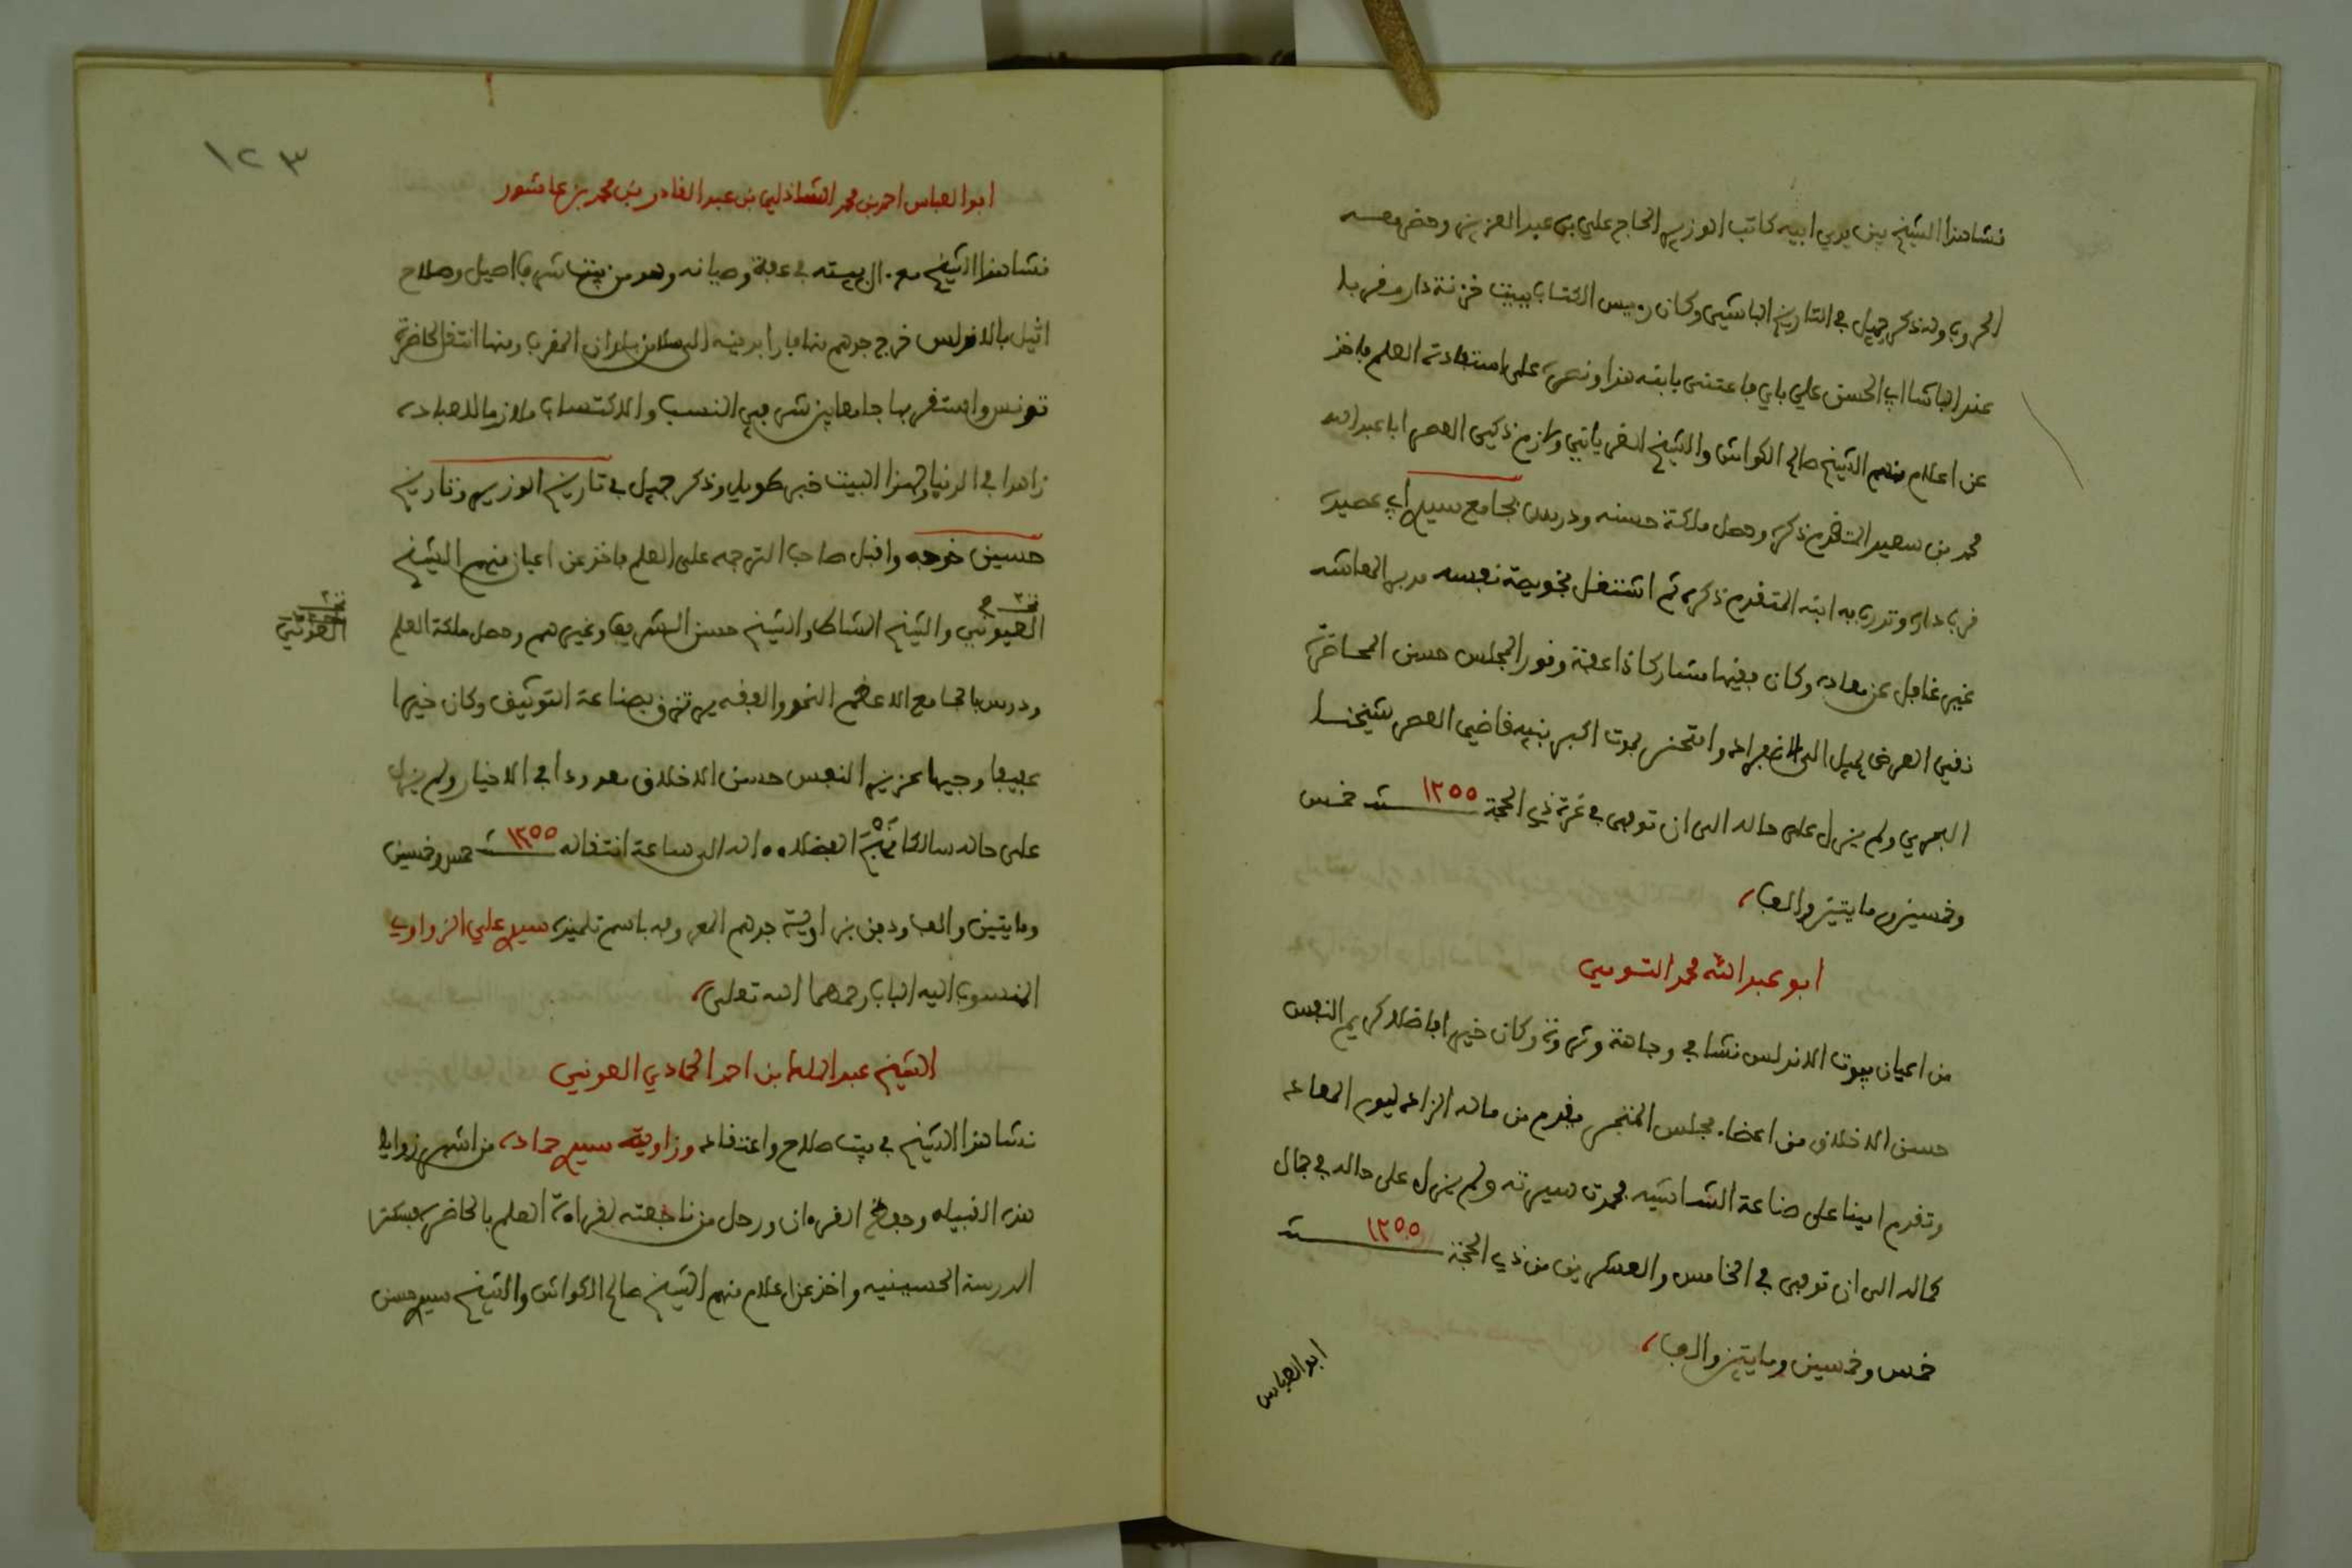 نشا هذا الشيخ بين يدي ابيه كاتب الوزير الحاج علي بن عبد العزيز وحضر معه
الحروب وله ذكر جميل في التاريخ الباشي وكان رييس الكتاب ببيت خزنة دار مقربا
عند الباشا ابي الحسن علي باي فاعتنى بابنه هذا وحرصه على استفادة العلم فاخذ
عن اعلام منهم الشيخ صالح الكواش والشيخ الغرياني ولازم ذكي العصر ابا عبد الله
محمد بن سعيد المتقدم ذكره وحصل ملكة حسنه ودرس بجامع سيدي ابي عصيدة
قرب داره وتدرب به ابنه المتقدم ذكره ثم اشتغل بخويصة نفسه مدبرا لمعاشه
غير غافل عن معاده وكان فقيها مشاركا ذا عفة وقور المجلس حسن المحاضرة
نقي العرض يميل الى الانفراد وامتحن بموت اكبر بنيه قاضي العصر شيخنا
البحري ولم يزل على حاله الى ان توفي في غرة ذي الحجة سنة ١٢٥٥ خمس
وخمسين ومايتين والف
ابو عبد الله محمد السويسي
من اعيان بيوت الاندلس نشا في وجاهة وثروة وكان خيرا فاضلا كريم النفس
حسن الاخلاق من اعضاء مجلس المتجر فقدم من ماله الزاد ليوم المعاد
وتقدم امينا على صناعة الشاشيه فحمدت سيرته ولم يزل على حاله في جمال
كماله الى ان توفي في الخامس والعشرين من ذي الحجة سنة ١٢٥٥
خمس وخمسين ومايتين والف
ابو العباس
١٢٣
ابو العباس احمد بن محمد الشاذلي بن عبد القادر بن محمد بن عاشور
نشا هذا الشيخ مع آل بيته في عفة وصيانه وهو من بيت شرف اصيل وصلاح
اثيل بالاندلس خرج جدهم منها فارا بدينه الى سلا من بلدان المغرب ومنها انتقل لحاضرة
تونس واستقر بها جامعا بين شرفي النسب والاكتساب ملازما للعبادة
زاهدا في الدنيا ولهذا البيت خبر طويل وذكر جميل في تاريخ الوزير وتاريخ
حسين خوجه واقبل صاحب الترجمه على العلم فاخذ عن اعيان منهم الشيخ
العيوني والشيخ الشاط والشيخ حسن الشريف وغيرهم وحصل ملكة العلم
نخـ
العوني
ودرس بالجامع الاعظم النحو والفقه يرتزق بصناعة التوثيق وكان خيرا
عفيفا وجيها عزيز النفس حسن الاخلاق معدودا في الاخيار ولم يزل
على حاله سالكا منهج الفضلاء الى ساعة انتقاله سنة ١٢٥٥ خمس وخمسين
ومايتين والف ودفن بزاوية جدهم المعروفه باسم تلميذه سيدي علي الزواوي
المنسوب اليه الباب رحمهما الله تعلى
الشيخ عبد الملك بن احمد الحمادي العوني
نشا هذا الشيخ في بيت صلاح واعتقاد وزاوية سيدي حماده من اشهر زوايا
هذه القبيله وحفظ القرءان ورحل من ناجعته لقراءة العلم بالحاضرة فسكن
المدرسة الحسينيه واخذ عن اعلام منهم الشيخ صالح الكواش والشيخ سيدي حسن